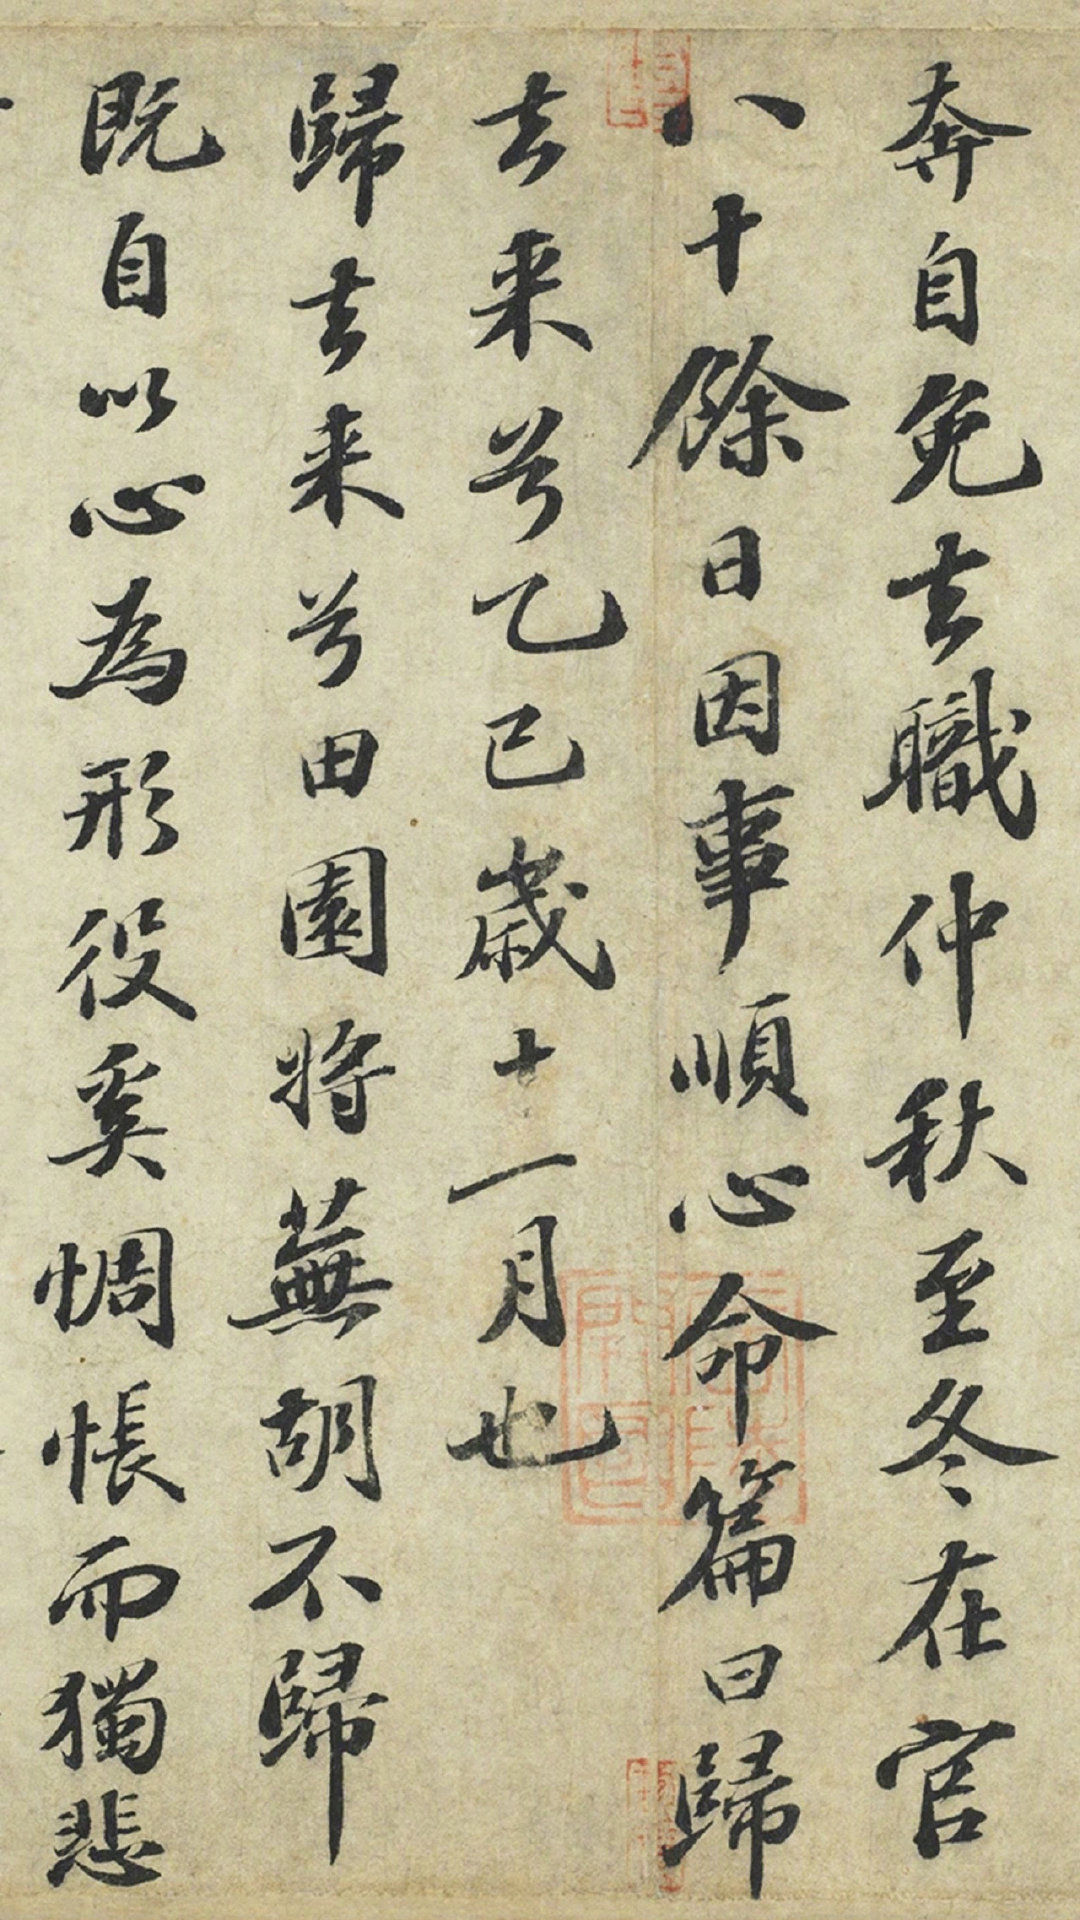 奔自免去職仲秋至冬在官
八十餘日因事順心命篇曰歸
去来兮乙巳歲十一月也
歸去来兮田園將蕪胡不歸
既自以心為形役奚惆悵而獨悲